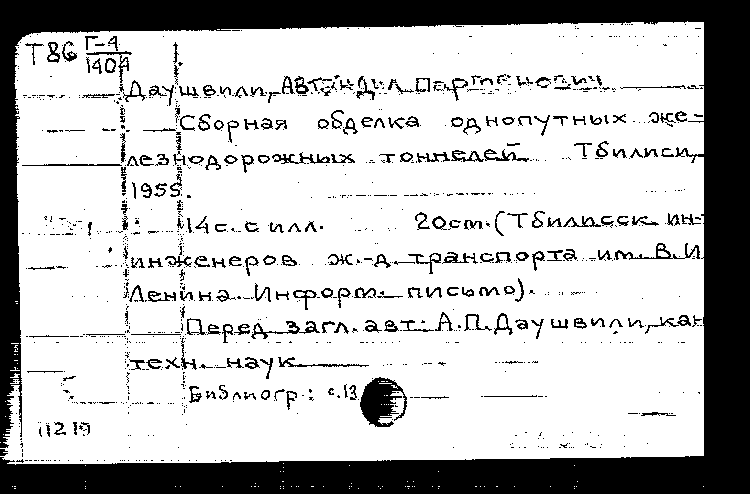 Т86 Г-4
140А
Даушвили, Автандил Парменович
Сборная обделка однопутных же-
лезнодорожных тоннелей Тбилиси,
1955.
14с. с илл. 20см. (Тбилисск. ин-
инженеров ж.-д. транспорта им. В.И
Ленина. Информ. письмо).
Перед загл. авт: А.П. Даушвили, кан
техн. наук
Библиогр: с.13
11219